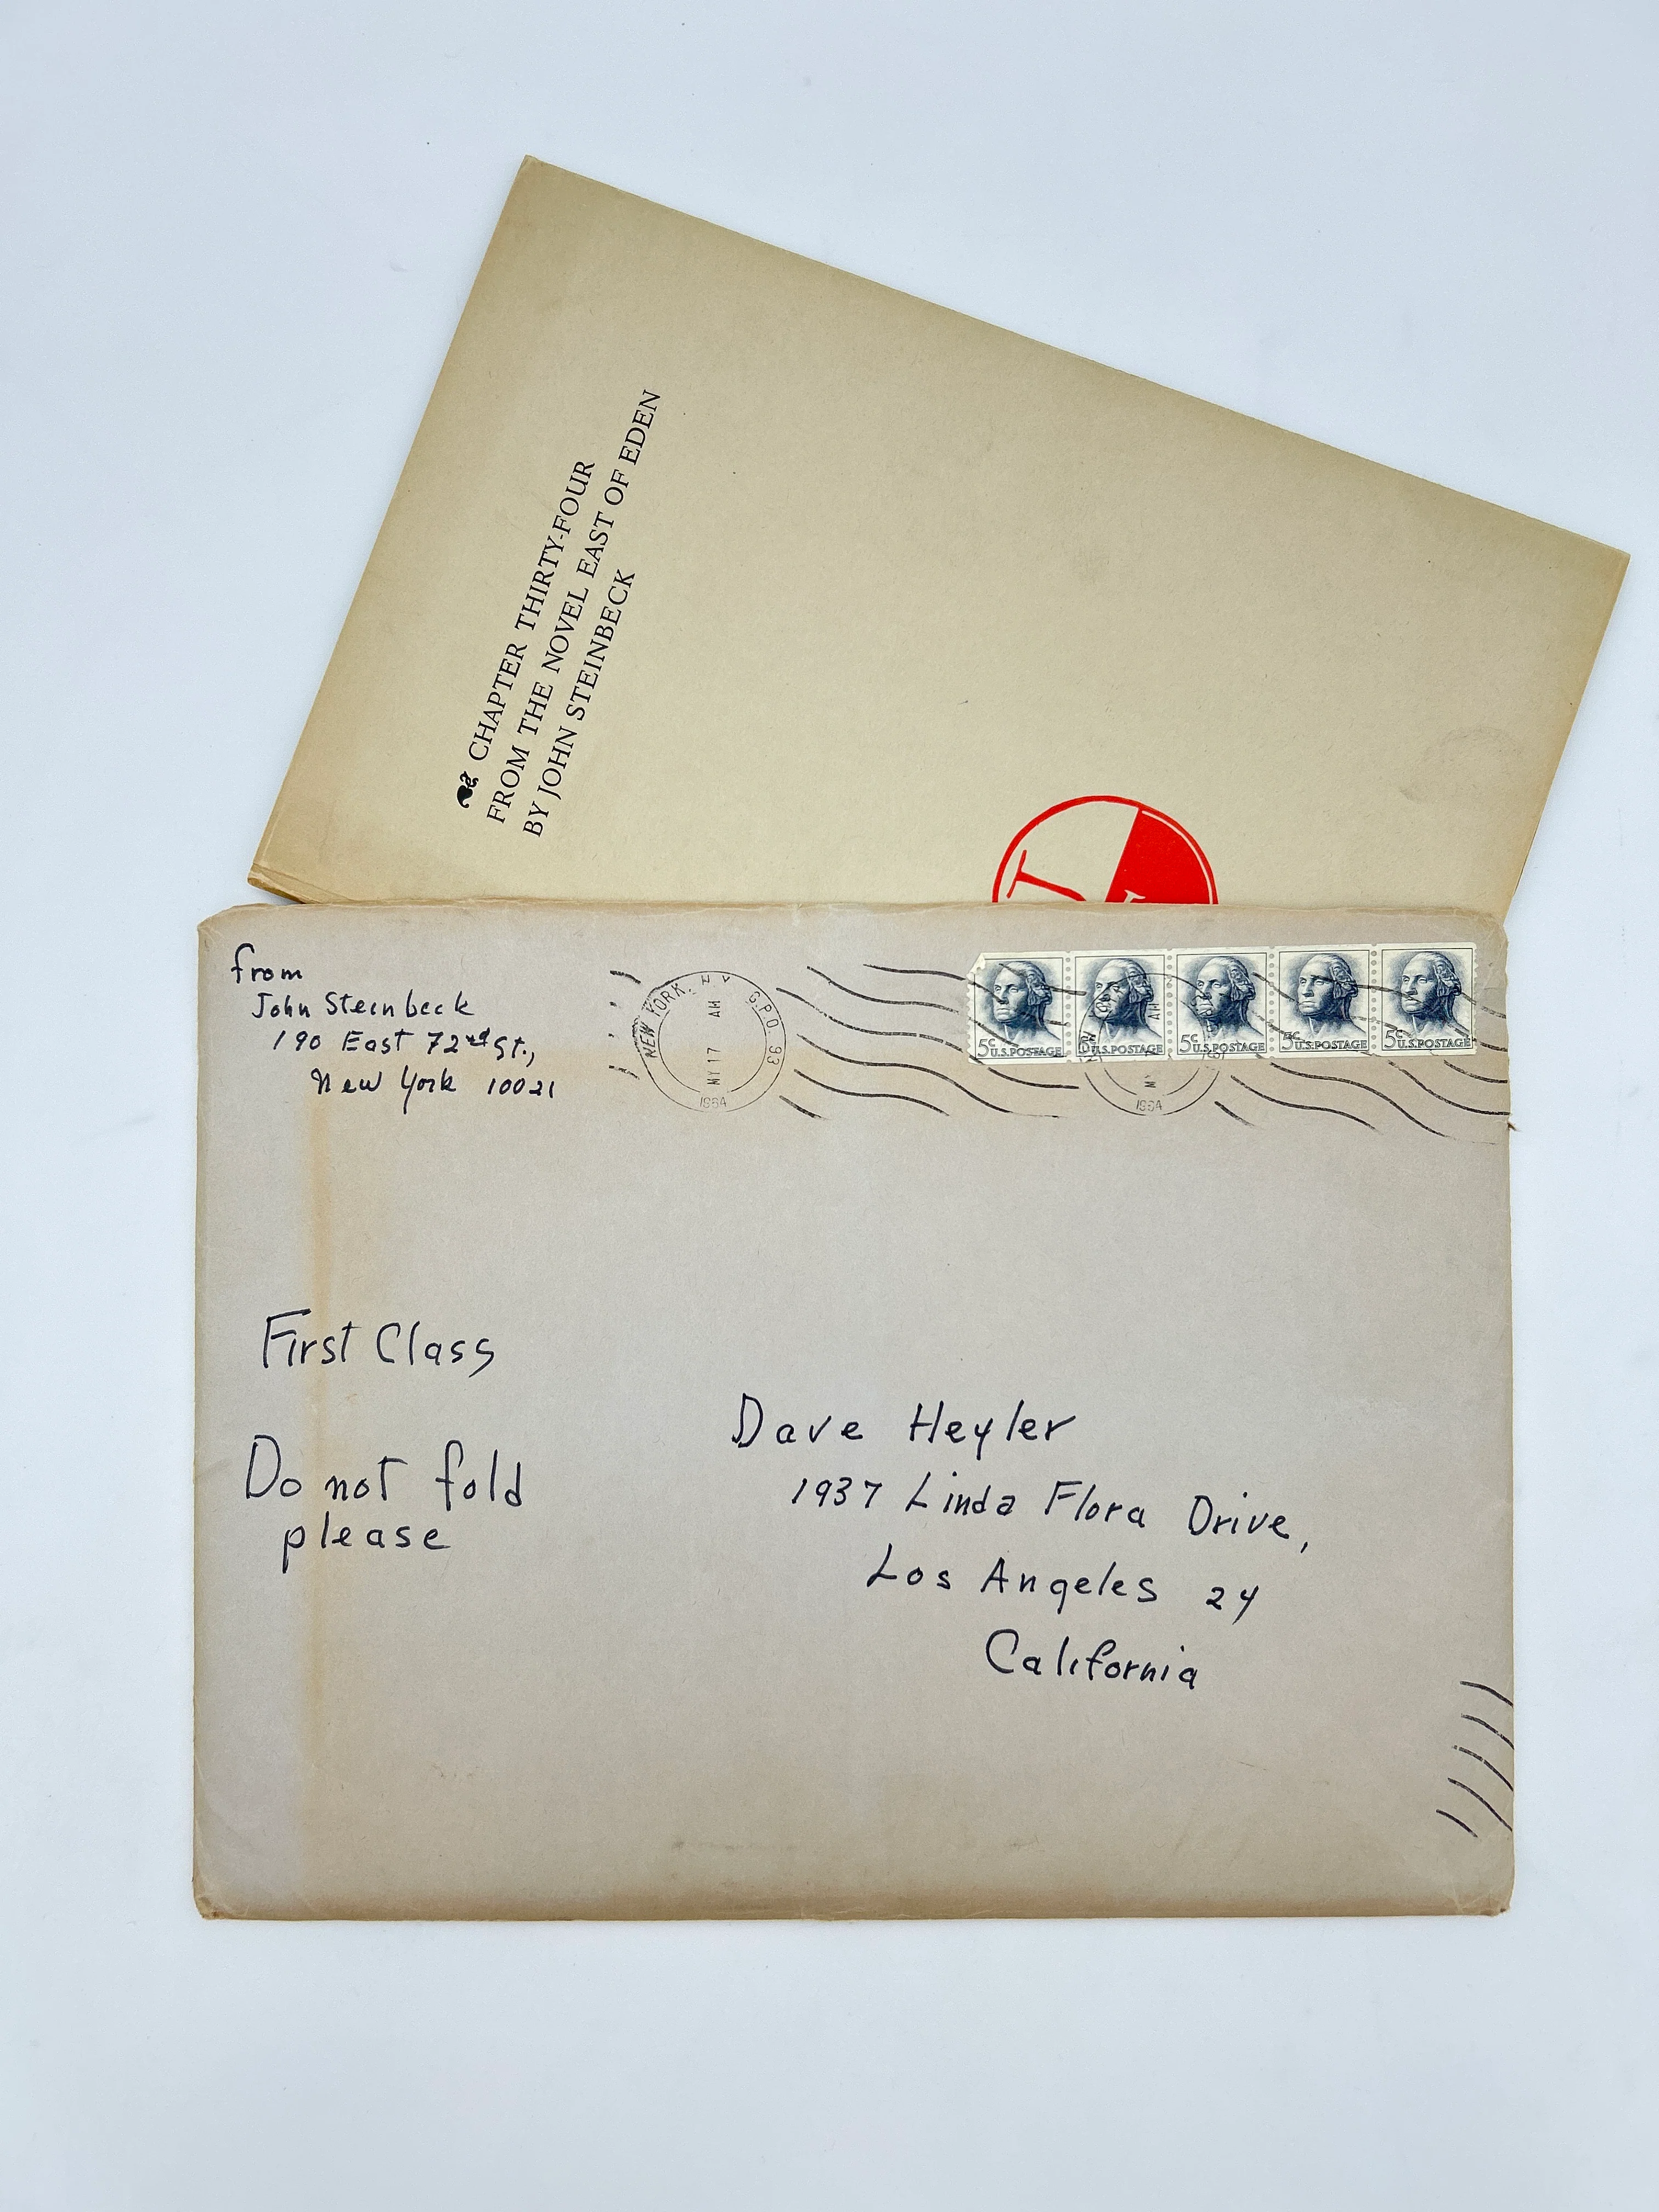 CHAPTER THIRTY-FOUR
FROM THE NOVEL EAST OF EDEN
BY JOHN STEINBECK
from
John Steinbeck
190 East 72nd St.,
New York 10021
NEW YORK, N Y G.P.O. 93
AM
MY 17
1964
5c U.S. POSTAGE
5c U.S. POSTAGE
5c U.S. POSTAGE
5c U.S. POSTAGE
5c U.S. POSTAGE
AM
1964
First Class
Do not fold
please
Dave Heyler
1937 Linda Flora Drive,
Los Angeles 24
California